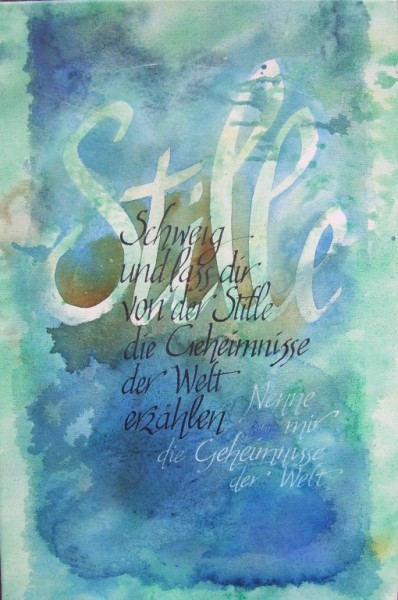 Stille
Schweig
und lass dir
von der Stille
die Geheimnisse
der Welt
erzählen
Nenne
mir
die Geheimnisse
der Welt